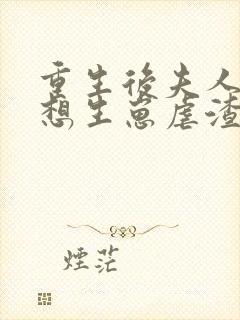 重生後夫人
想生崽虐渣
煙茫